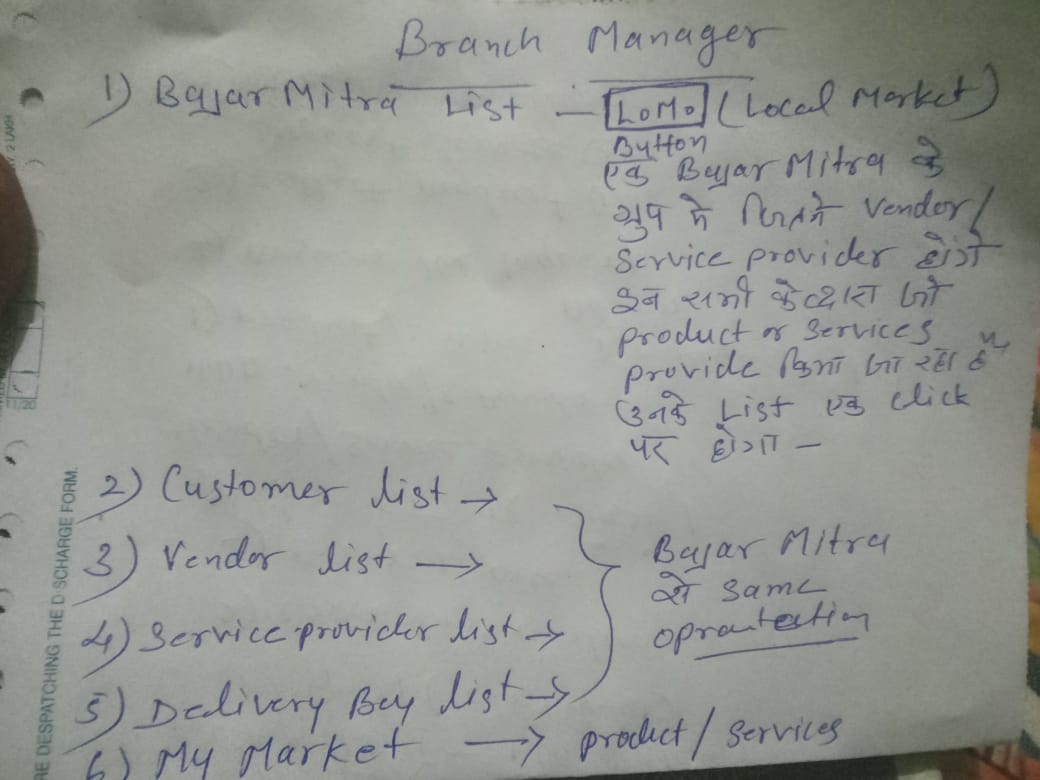 Branch Manager
1) Bajar Mitra List - LoMo (Local Market)
Button
एक Bajar Mitra के
ग्रुप मे जितने Vendor/
Service provider होंगे
इन सभी के द्वारा जो
product or Services
provide किया जा रहा है
उनके List एक click
पर होगा -
2) Customer list →
3) Vendor list →
4) Service provider list →
5) Delivery Boy list →
Bajar Mitra
से same
6) My Market → product / Services
RE DESPATCHING THE DISCHARGE FORM.
11/20